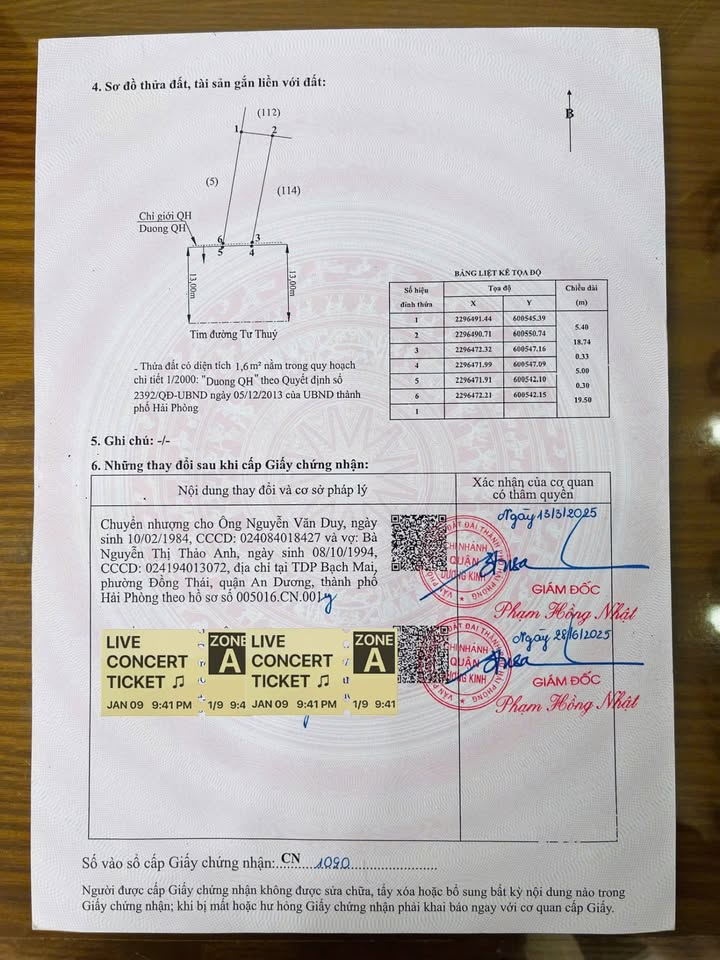 4. Sơ đồ thửa đất, tài sản gắn liền với đất:
(112)
B
1
2
(5)
(114)
Chỉ giới QH
Duong QH
6
3
5
4
13,00m
13,00m
Tim đường Tư Thuỷ
- Thửa đất có diện tích 1,6m² nằm trong quy hoạch
chi tiết 1/2000: "Duong QH" theo Quyết định số
2392/QĐ-UBND ngày 05/12/2013 của UBND thành
phố Hải Phòng
BẢNG LIỆT KÊ TỌA ĐỘ
Số hiệu đỉnh thửa Tọa độ Chiều dài (m)
X Y
1 2296491.44 600545.39
5.40
2 2296490.71 600550.74
18.74
3 2296472.32 600547.16
0.33
4 2296471.99 600547.09
5.00
5 2296471.91 600542.10
0.30
6 2296472.21 600542.15
19.50
1
5. Ghi chú: -/-
6. Những thay đổi sau khi cấp Giấy chứng nhận:
Nội dung thay đổi và cơ sở pháp lý
Xác nhận của cơ quan
có thẩm quyền
Chuyển nhượng cho Ông Nguyễn Văn Duy, ngày
sinh 10/02/1984, CCCD: 024084018427 và vợ: Bà
Nguyễn Thị Thảo Anh, ngày sinh 08/10/1994,
CCCD: 024194013072, địa chỉ tại TDP Bạch Mai,
phường Đồng Thái, quận An Dương, thành phố
Hải Phòng theo hồ sơ số 005016.CN.001
Ngày 13/3/2025
CHI NHÁNH
QUẬN
DƯƠNG KINH
GIÁM ĐỐC
Phạm Hồng Nhật
LIVE
CONCERT
TICKET ♫
JAN 09 9:41 PM
ZONE
A
1/9 9:4
LIVE
CONCERT
TICKET ♫
JAN 09 9:41 PM
ZONE
A
1/9 9:41
Ngày 28/6/2025
CHI NHÁNH
QUẬN
DƯƠNG KINH
GIÁM ĐỐC
Phạm Hồng Nhật
Số vào sổ cấp Giấy chứng nhận: CN 1090
Người được cấp Giấy chứng nhận không được sửa chữa, tẩy xóa hoặc bổ sung bất kỳ nội dung nào trong
Giấy chứng nhận; khi bị mất hoặc hư hỏng Giấy chứng nhận phải khai báo ngay với cơ quan cấp Giấy.